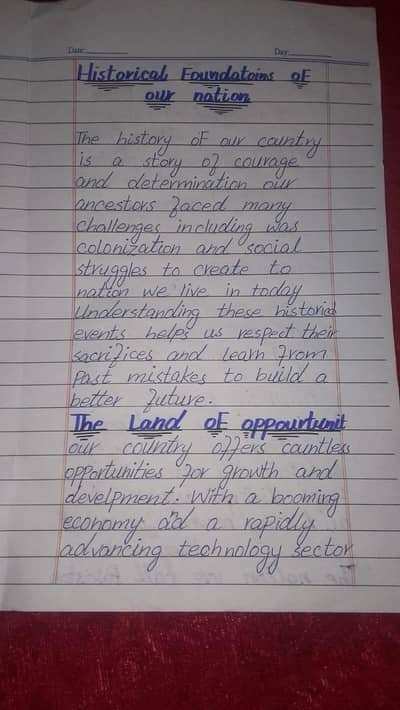 Date:
Day:
Historical Foundatoins of
our nation
The history of our country
is a story of courage
and determination our
ancestors faced many
challenges including was
colonization and social
struggles to create to
nation we live in today
understanding these historical
events helps us respect their
sacrifices and learn from
Past mistakes to build a
better future.
The Land of oppourtunit
our country offers countless
opportunities for growth and
develpment. With a booming
economy and a rapidly
advancing technology sector